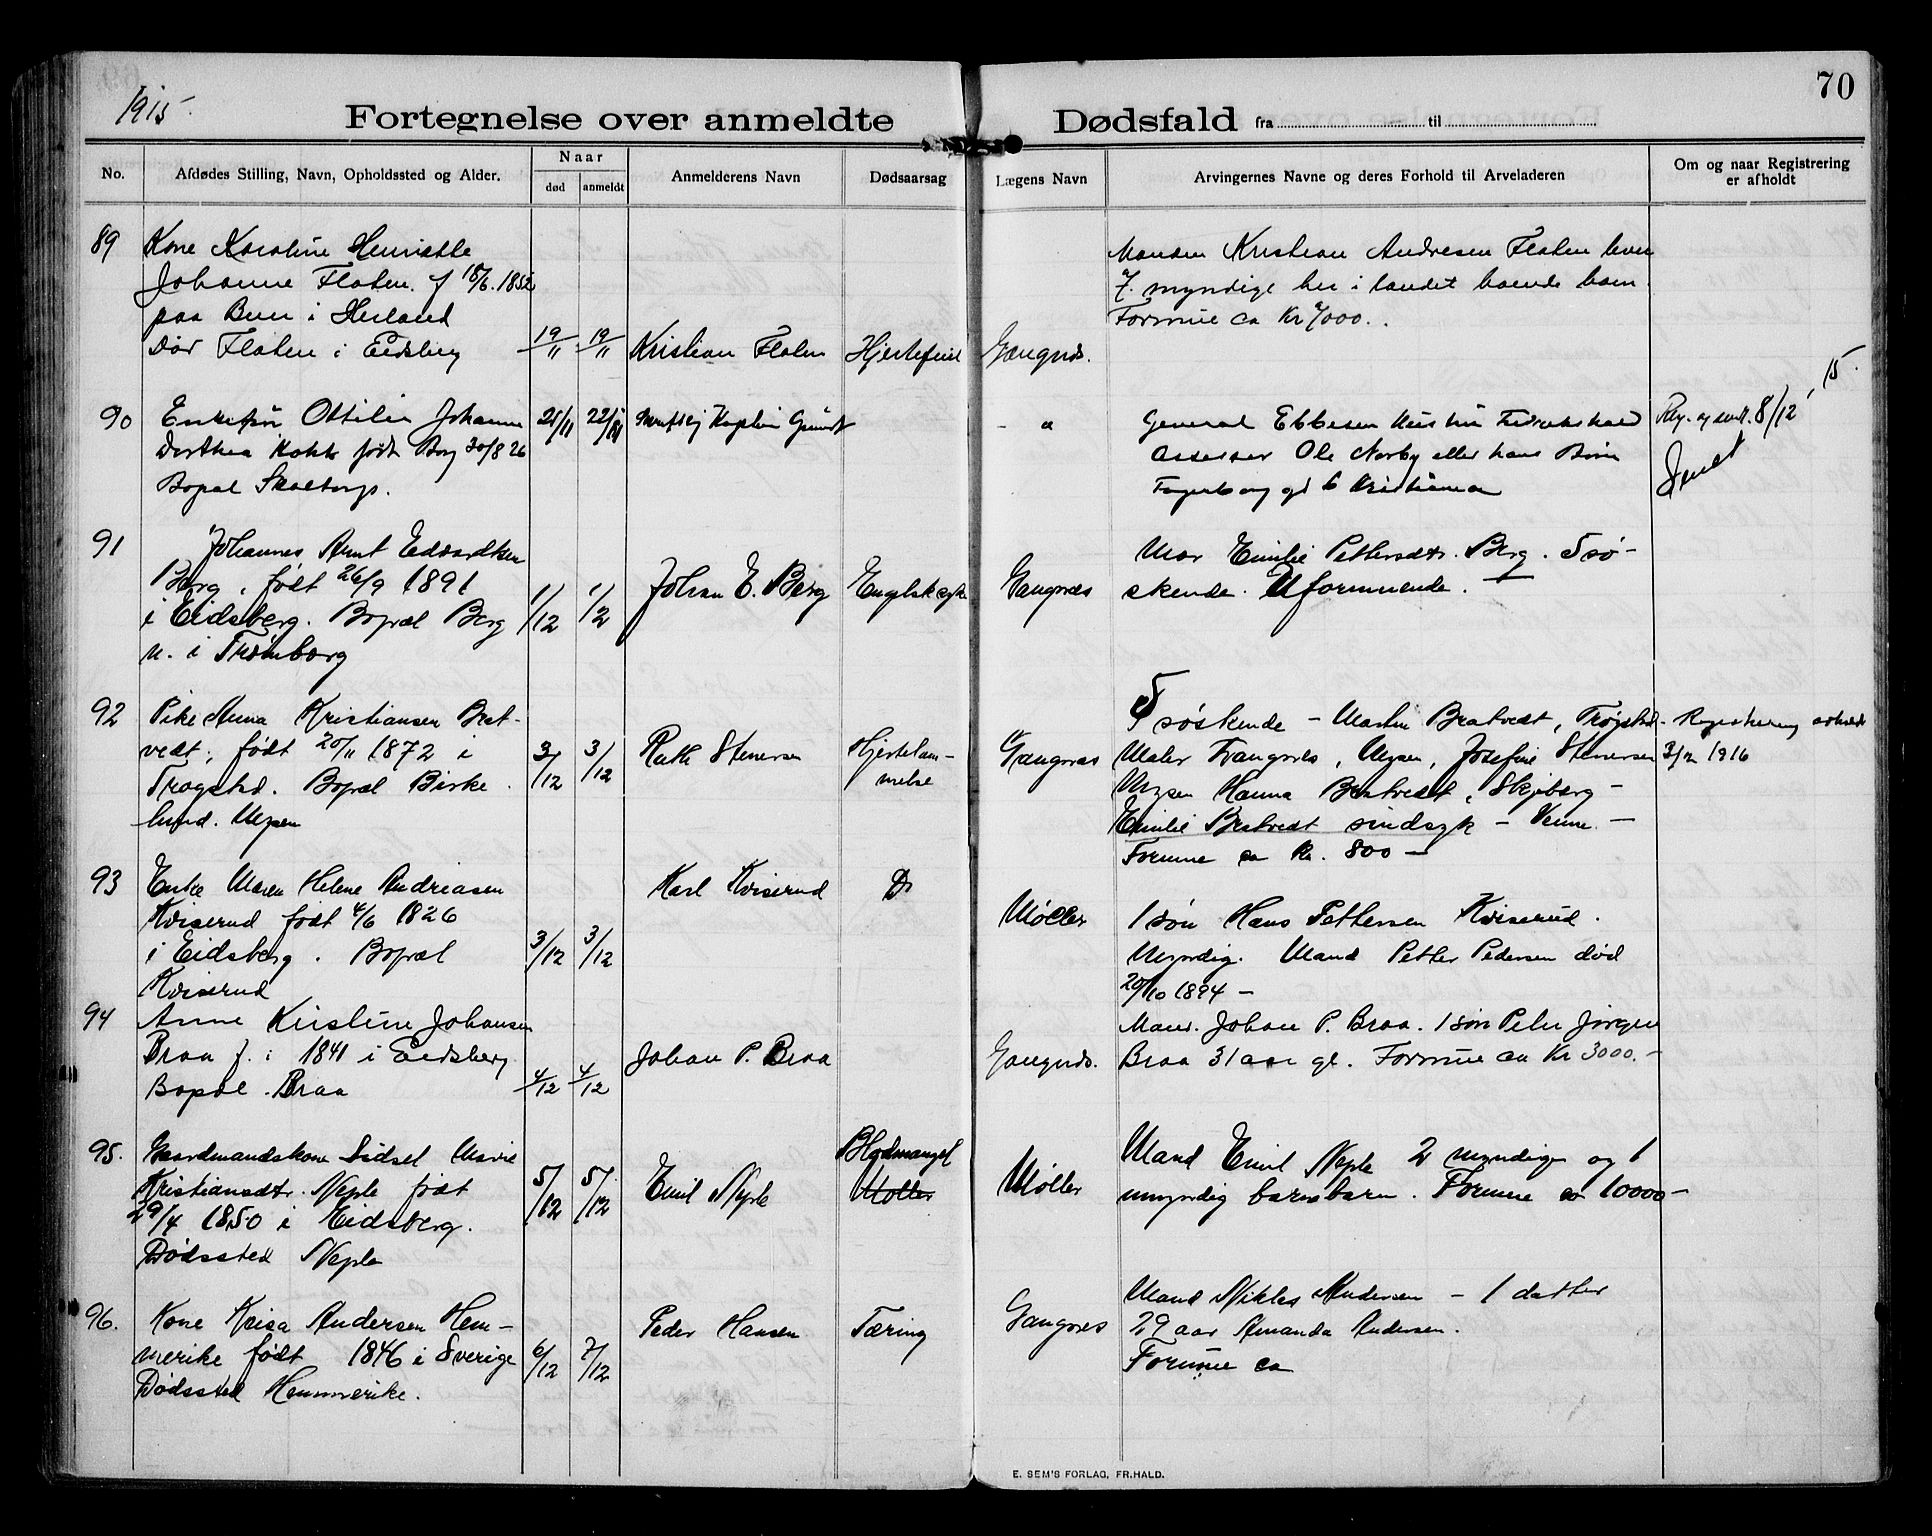 70
1915
Fortegnelse over anmeldte Dødsfald fra til
No.
Afdødes Stilling, Navn, Opholdssted og Alder.
Naar
død
anmeldt
Anmelderens Navn
Dødsaarsag
Lægens Navn
Arvingernes Navne og deres Forhold til Arveladeren
Om og naar Registrering
er afholdt
89
Kone Karoline Henriette
Johanne Floten. f 18/6. 1852
paa Buer i Herland
Dør Floten i Eidsberg
19/11
19/11
Kristian Floten
Hjertefeil
Gangnæs.
Manden Kristian Andresen Floten lever
7. myndige her i landet boende barn
Formue ca Kr 7000..
90
Enkefru Ottilie Johanne
Dorthea født Borg 30/8 26
Bopæl Skoltorp.
21/11
22/11
Kaplein Grundt
- "
General Ebbesen Fredrikshald
Assessor Ole Norby eller hans
Fagerborg gd 6 Kristiania
Reg. og 8/12 15.
91
Johannes Arnt Edvardsen
Berg, født 26/9 1891
i Eidsberg. Bopæl Berg
n. i Trømborg
1/12
1/12
Johan E. Berg
Engelsk syke
Gangnæs
Mor Emilie Pettersdtr. Berg. 5 sø-
skende. Uformuende.
92
Pike Anna Kristiansen Brat-
vedt, født 20/11 1872 i
Trøgstad. Bopæl Birke
lund. Mysen
3/12
3/12
Stenersen
Hjertelam-
melse
Gangnæs
5 søskende - Martin Bratvedt, Trøgstad -
Maler Frangsres, Mysen, Josefine Stenersen
Mysen Hanna Bratvedt, Skjeberg -
Emilie Bratvedt sindsyk - Venne. -
Formue ca Kr. 800 -
Registrering avholdt
1916
93
Enke Maren Helene Andreasen
Kviserud født 4/6 1826
i Eidsberg. Bopæl
Kviserud
3/12
3/12
Karl Kviserud
Do
Møller
1 søn Hans Pettersen Kviserud.
Myndig. Mand Petter Pedersen død
20/10 1894 -
94
Anne Kirstine Johansen
Braa f. i 1841 i Eidsberg
Bopæl. Braa
4/12
4/12
Johan P. Braa
Gangnæs.
Mand. Johan P. Braa. 1 søn Peter Jørgen
Braa 31 aar gl. Formue ca Kr 3000.-
95.
Gaardmandskone Sidsel Marie
Kristiansdtr. Neple født
29/4 1850 i Eidsberg.
Dødssted Neple
5/12
5/12
Emil Neple
Blodmangel
Møller
Møller
Mand Emil Neple 2 myndige og 1
umyndig barnebarn. Formue ca 10000-
96.
Kone Kaisa Andersen Hem-
merike født 1846 i Sverige
Dødssted Hemmerike.
6/12
7/12
Peder Hansen
Tæring
Gangnæs
Mand Niklas Andersen - 1 datter
29 aar Amanda Andersen.
Formue ca
E. SEM'S FORLAG, FR.HALD.